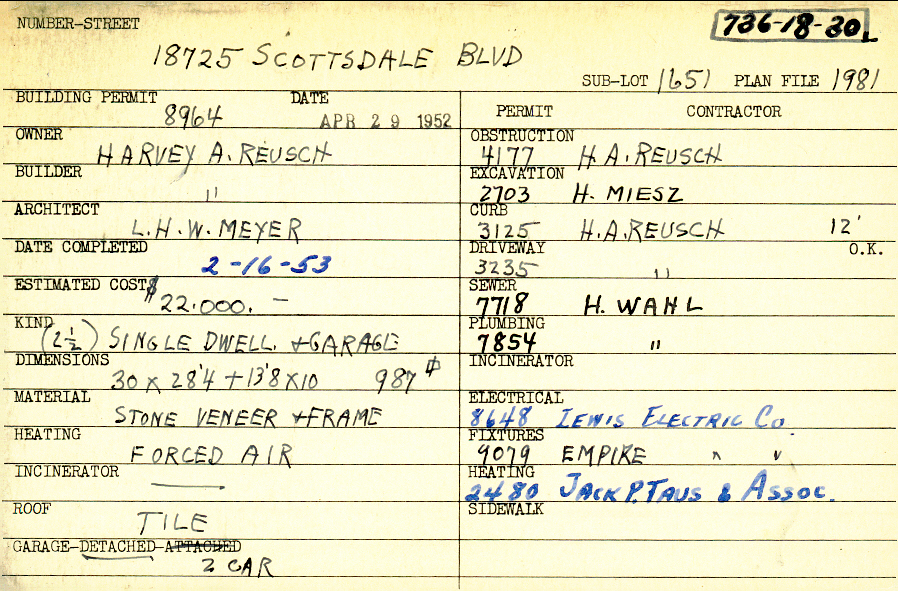 NUMBER-STREET
736-18-30L
18725 SCOTTSDALE BLVD
SUB-LOT 1651 PLAN FILE 1981
BUILDING PERMIT DATE
8964 APR 29 1952
OWNER
HARVEY A. REUSCH
BUILDER
"
ARCHITECT
L.H.W. MEYER
DATE COMPLETED
2-16-53
ESTIMATED COST $
22.000. —
KIND
(2½) SINGLE DWELL. + GARAGE
DIMENSIONS
30 X 28'4 + 13'8 X 10 987 ⌗
MATERIAL
STONE VENEER + FRAME
HEATING
FORCED AIR
INCINERATOR
—
ROOF
TILE
GARAGE-DETACHED-ATTACHED
2 CAR
PERMIT CONTRACTOR
OBSTRUCTION
4177 H.A. REUSCH
EXCAVATION
2703 H. MIESZ
CURB
3125 H.A. REUSCH 12'
DRIVEWAY O.K.
3235 "
SEWER
7718 H. WAHL
PLUMBING
7854 "
INCINERATOR
ELECTRICAL
8648 LEWIS ELECTRIC Co.
FIXTURES
9079 EMPIRE " "
HEATING
2480 JACK P. TAUS & ASSOC.
SIDEWALK